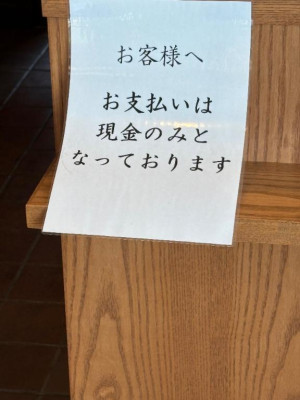 お客様へ
お支払いは
現金のみと
なっております